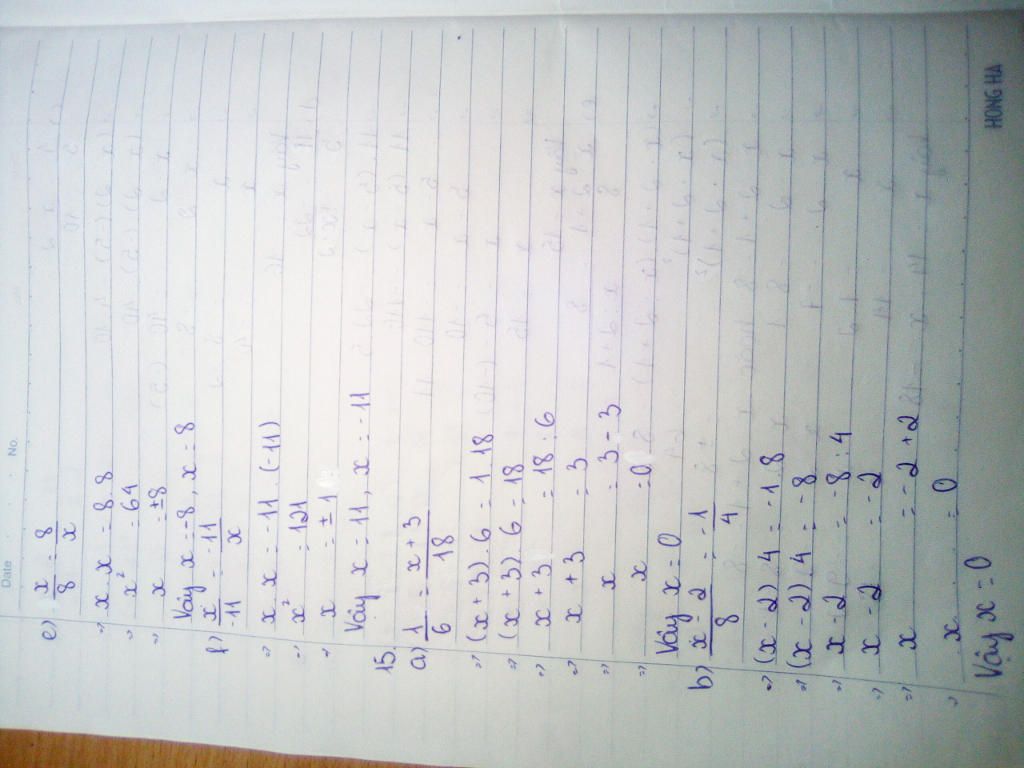 Date . . No.
e) x/8 = 8/x
=> x . x = 8 . 8
=> x² = 64
=> x = ±8
Vậy x = -8, x = 8
f) x/-11 = -11/x
=> x . x = -11 . (-11)
=> x² = 121
=> x = ±1
Vậy x = 11, x = -11
15.
a) 1/6 = x + 3/18
=> (x + 3) . 6 = 1 . 18
=> (x + 3) . 6 = 18
=> x + 3 = 18 : 6
=> x + 3 = 3
=> x = 3 - 3
=> x = 0
Vậy x = 0
b) x - 2/8 = -1/4
=> (x - 2) . 4 = -1 . 8
=> (x - 2) . 4 = -8
=> x - 2 = -8 : 4
=> x - 2 = -2
=> x = -2 + 2
=> x = 0
Vậy x = 0
HONG HA